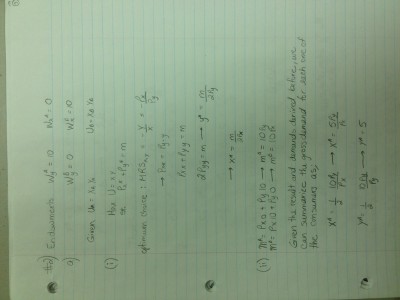 #2) Endowments
W_y^A = 10 W_x^A = 0
W_y^B = 0 W_x^B = 10
a)
Given U_A = X_A Y_A U_B = X_B Y_B
(i)
Max U = XY
st. P_x X + P_y Y = m
optimum choice : MRS_{x,y} = -Y/X = -P_x/P_y
→ P_x x = P_y y
P_x x + P_y y = m
2P_y y = m → y* = m/2P_y
→ x* = m/2P_x
(ii)
m^A = P_x 0 + P_y 10 → m^A = 10P_y
m^B = P_x 10 + P_y 0 → m^B = 10P_x
Given the result and demands derived before, we
can summarize the gross demand for each one of
the consumers as;
X^A = 1/2 10P_y/P_x → X^A = 5P_y/P_x
Y^A = 1/2 10P_y/P_y → Y^A = 5